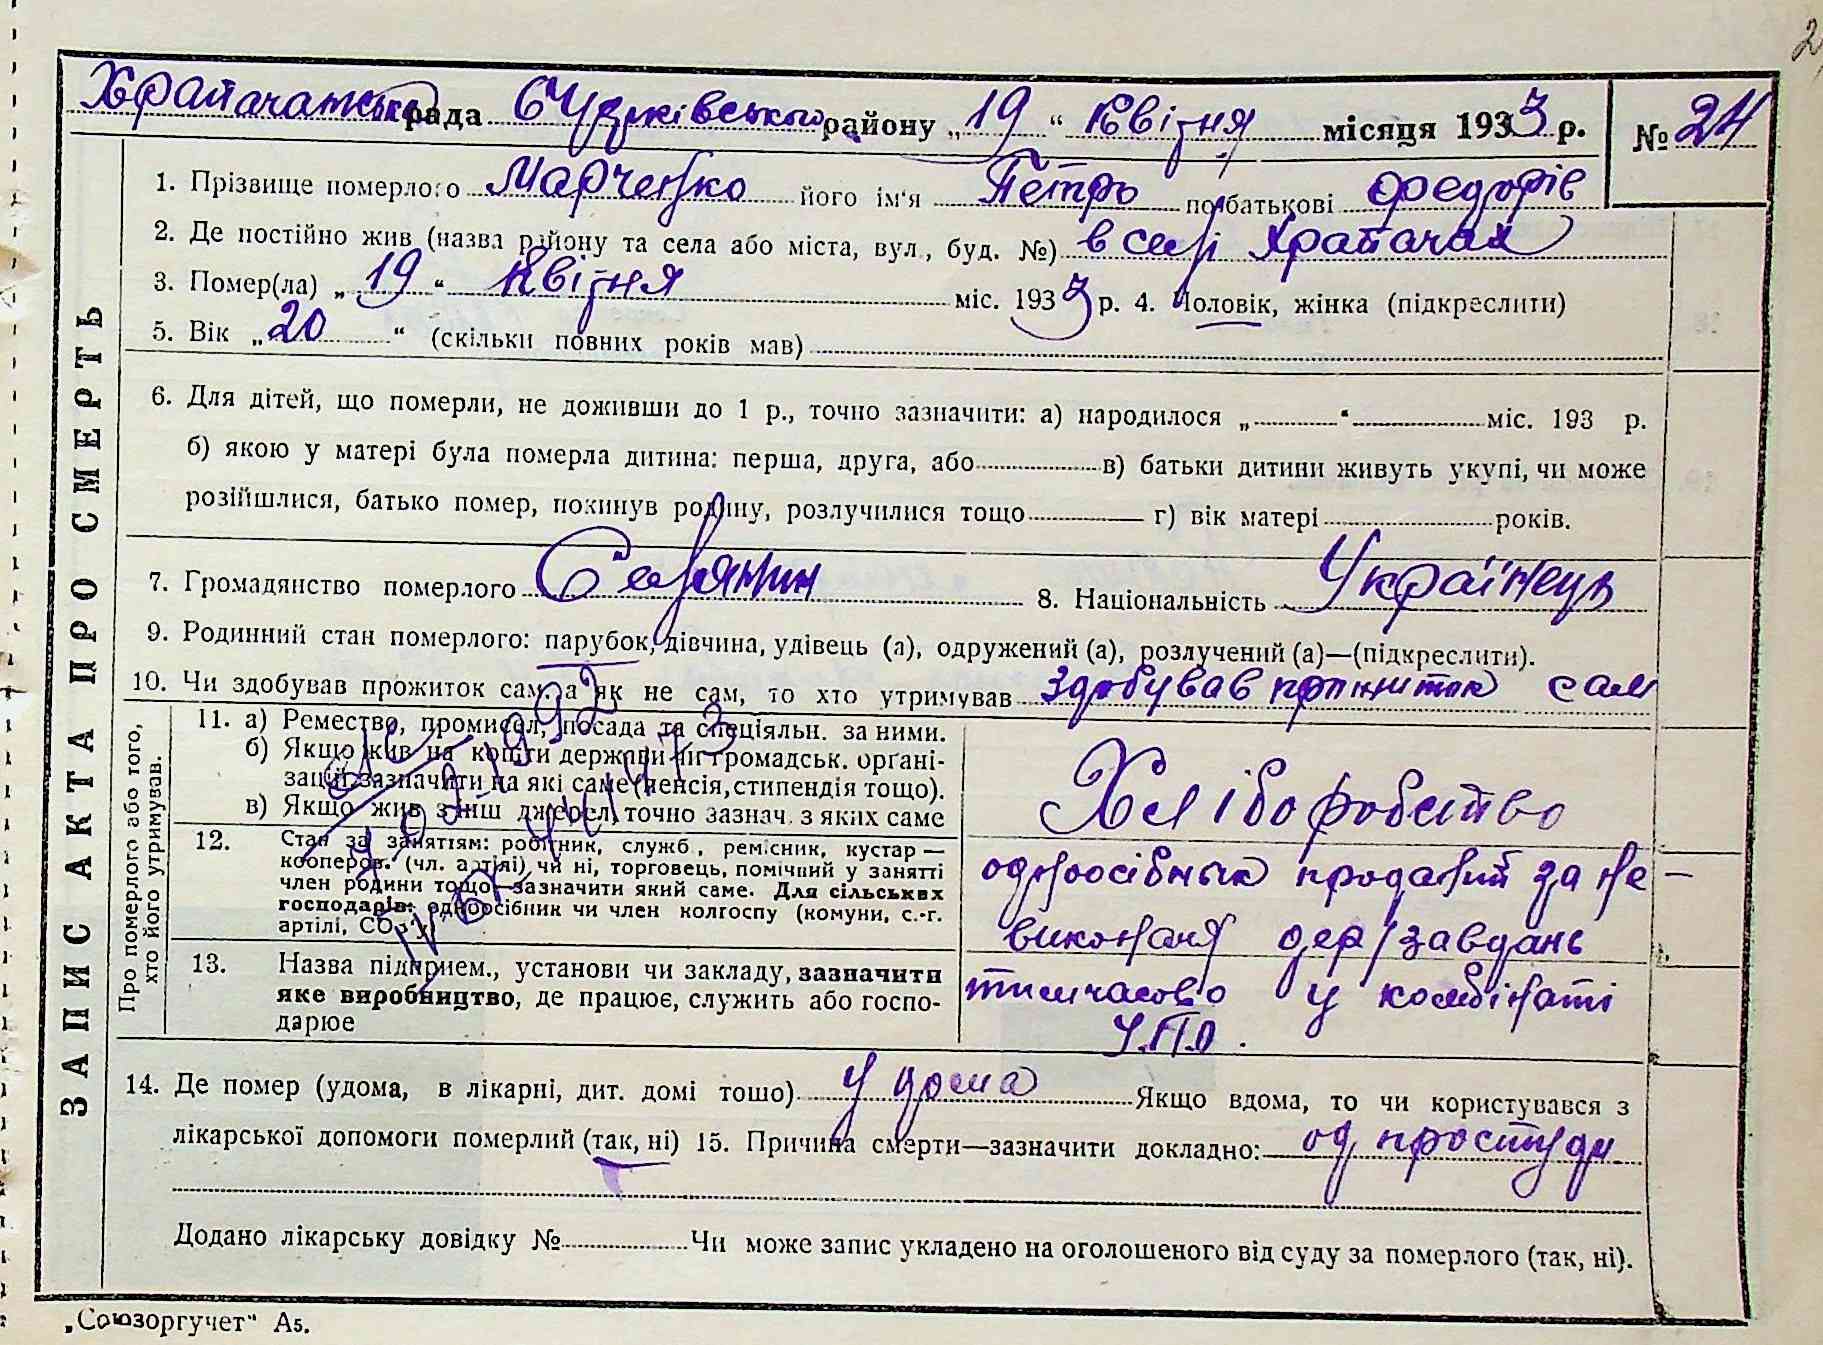 2
Храпачатська рада Б Церківського району „19“ Квітня місяця 1933 р. № 24
ЗАПИС АКТА ПРО СМЕРТЬ
1. Прізвище померлого Марченко його ім'я Петро по батькові Федорів
2. Де постійно жив (назва району та села або міста, вул., буд. №) в селі Храпачах
3. Помер(ла) „19“ Квітня міс. 1933 р. 4. Чоловік, жінка (підкреслити)
5. Вік „20“ (скільки повних років мав)
6. Для дітей, що померли, не доживши до 1 р., точно зазначити: а) народилося „ “ міс. 193 р.
б) якою у матері була померла дитина: перша, друга, або в) батьки дитини живуть укупі, чи може
розійшлися, батько помер, покинув родину, розлучилися тощо г) вік матері років.
7. Громадянство померлого Селянин 8. Національність Українець
9. Родинний стан померлого: парубок, дівчина, удівець (а), одружений (а), розлучений (а)—(підкреслити).
10. Чи здобував прожиток сам, а як не сам, то хто утримував здобував прожиток сам
Про померлого або того,
хто його утримував.
11. а) Ремество, промисел, посада та спеціяльн. за ними.
б) Якщо жив на кошти держави чи громадськ. орґані-
зації, зазначити на які саме (пенсія, стипендія тощо).
в) Якщо жив з інш джерел, точно зазнач. з яких саме
Хліборобство
12. Стан за заняттям: робітник, служб., ремісник, кустар —
кооперов. (чл. артілі) чи ні, торговець, помічний у занятті
член родини тощо—зазначити який саме. Для сільських
господарів: одноосібник чи член колгоспу (комуни, с.-г.
артілі, СОЗ'у)
одноосібник проданий за не —
виконаня дер/завдань
13. Назва підприєм., установи чи закладу, зазначити
яке виробництво, де працює, служить або госпо-
дарює
тимчасово у комбінаті
У.П.О.
14. Де помер (удома, в лікарні, дит. домі тощо) у дома Якщо вдома, то чи користувався з
лікарської допомоги померлий (так, ні) 15. Причина смерти—зазначити докладно: од простуди
Додано лікарську довідку № Чи може запис укладено на оголошеного від суду за померлого (так, ні).
„Союзоргучет“ А5.